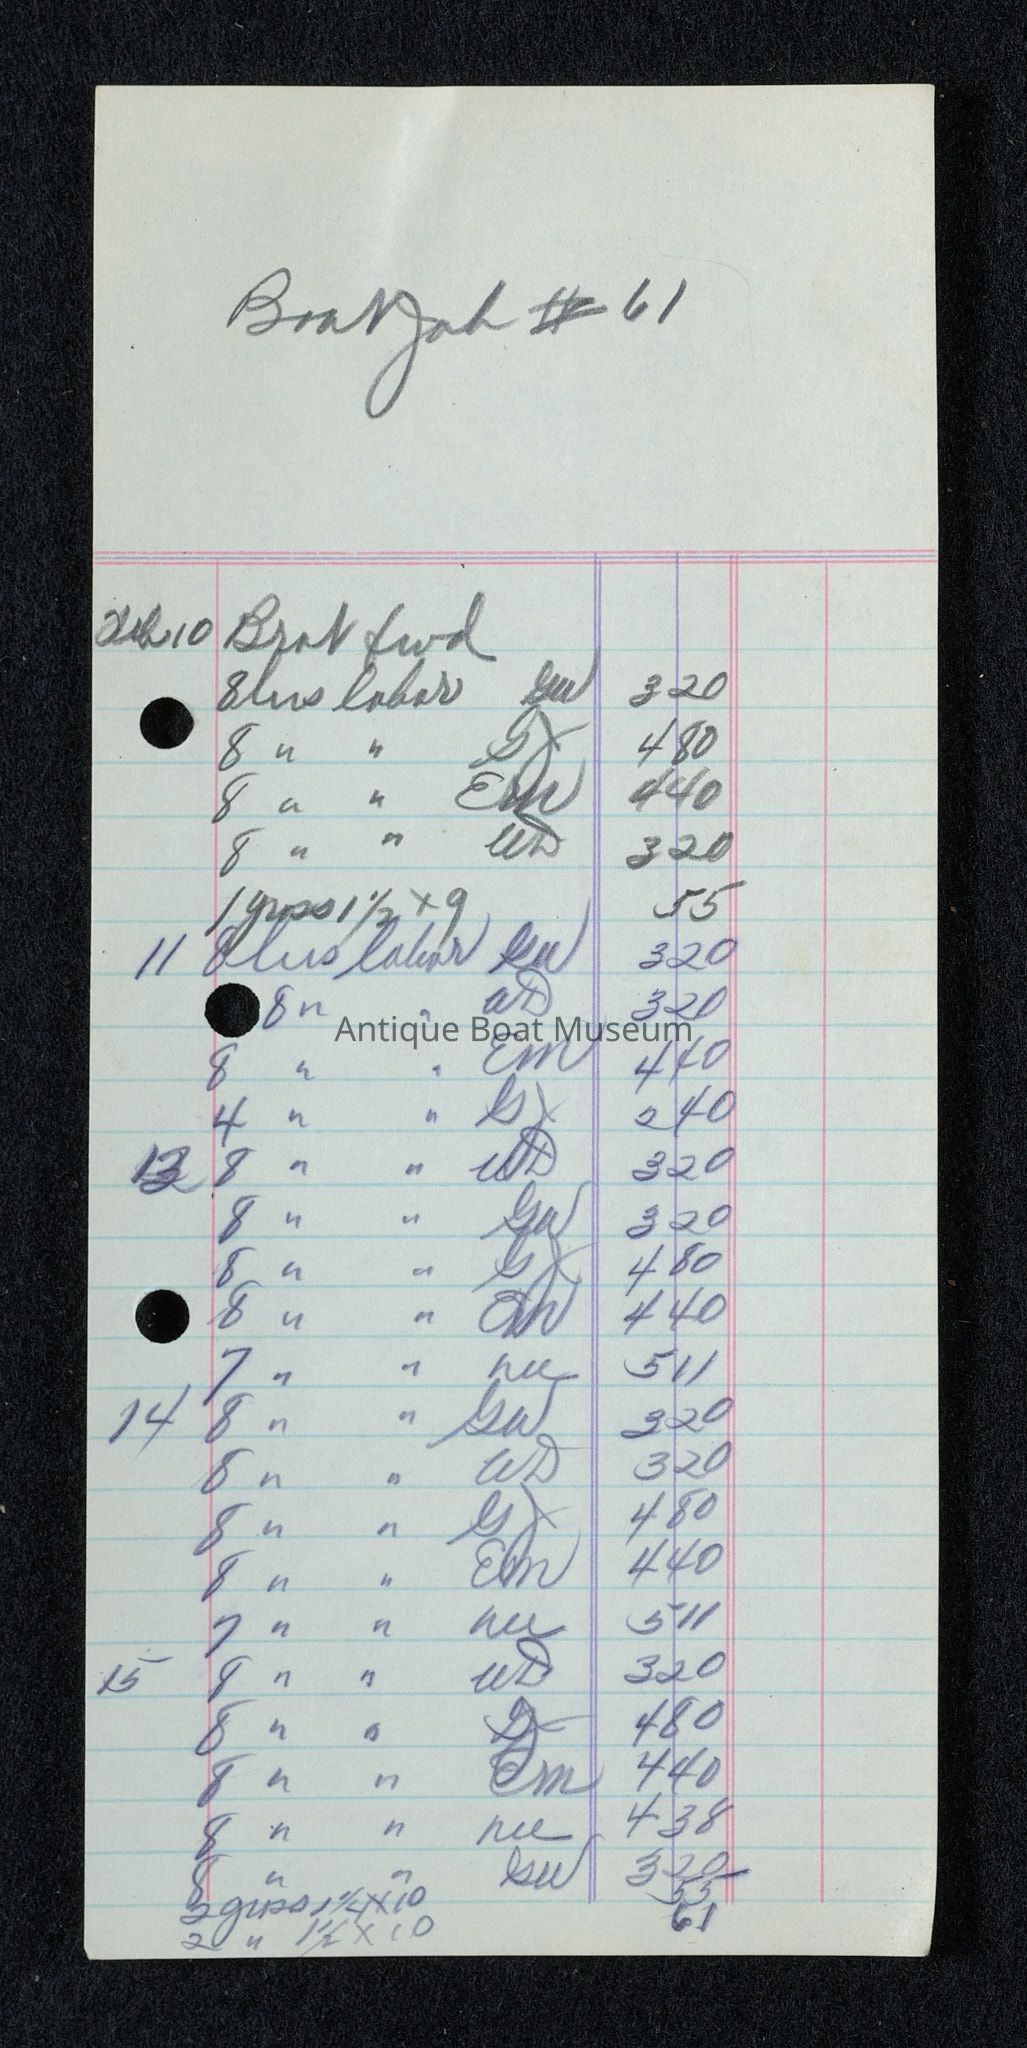 Boat Job # 61
Feb 10 Brot fwd
8 hrs labor GW 320
8 " " GX 480
8 " " EM 440
8 " " WD 320
1 gross 1 1/2 x 9 55
11 8 hrs labor GW 320
8 " " WD 320
Antique Boat Museum
8 " " EM 440
4 " " GX 240
8 " " WD 320
8 " " GW 320
8 " " GX 480
8 " " EM 440
7 " " 511
14 8 " " GW 320
8 " " WD 320
8 " " GX 480
8 " " EM 440
7 " " 511
15 8 " " WD 320
8 " " 480
8 " " EM 440
8 " " 438
8 " " GW 320
2 gross 1 1/4 x 10 55
2 " 1 1/2 x 10 61